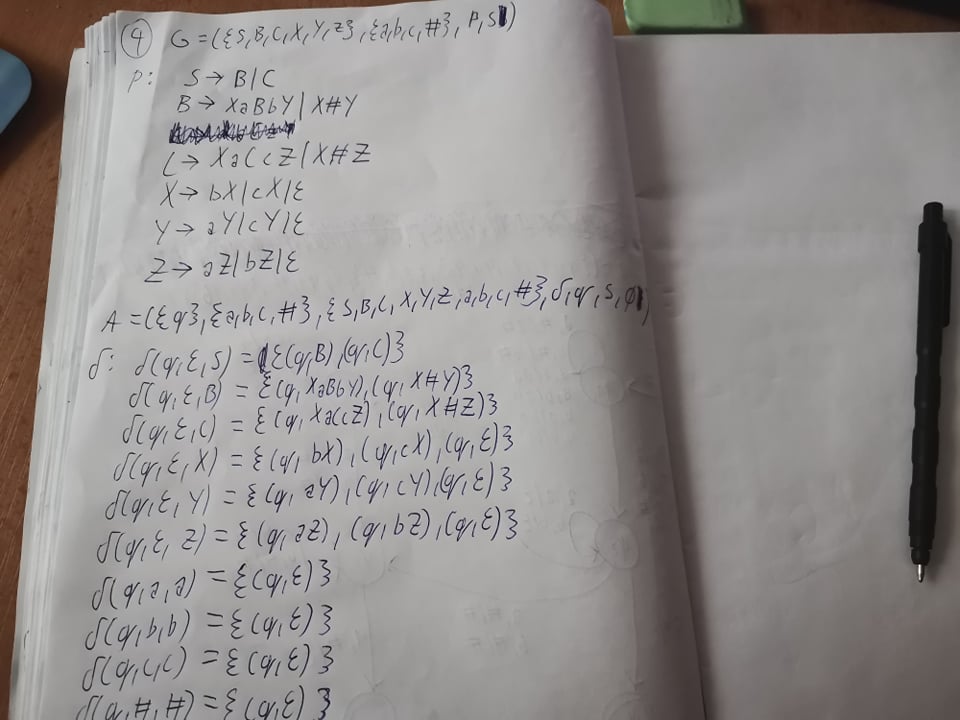 (4) G = ({S,B,C,X,Y,Z}, {a,b,c,#}, P, S)
P: S → B|C
B → XaBbY | X#Y
C → XaCcZ | X#Z
X → bX|cX|ε
Y → aY|cY|ε
Z → aZ|bZ|ε
A = ({q}, {a,b,c,#}, {S,B,C,X,Y,Z,a,b,c,#}, δ, q, S, ∅)
δ: δ(q,ε,S) = {(q,B),(q,C)}
δ(q,ε,B) = {(q,XaBbY),(q,X#Y)}
δ(q,ε,C) = {(q,XaCcZ),(q,X#Z)}
δ(q,ε,X) = {(q,bX),(q,cX),(q,ε)}
δ(q,ε,Y) = {(q,aY),(q,cY),(q,ε)}
δ(q,ε,Z) = {(q,aZ),(q,bZ),(q,ε)}
δ(q,a,a) = {(q,ε)}
δ(q,b,b) = {(q,ε)}
δ(q,c,c) = {(q,ε)}
δ(q,#,#) = {(q,ε)}